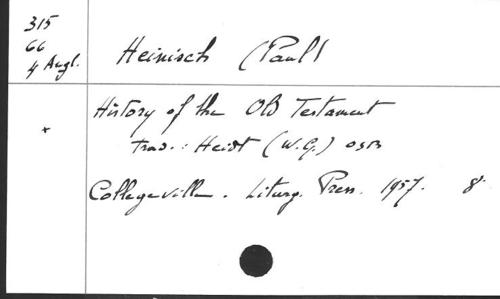 315
66
4 Angl.
Heinisch (Paul)
History of the Old Testament
Trad. : Heidt (W.G.) OSB
Collegeville. Liturg. Press. 1957. 8°
*